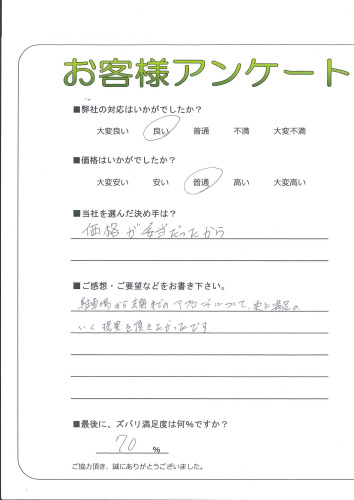 お客様アンケート
■弊社の対応はいかがでしたか？
大変良い 良い 普通 不満 大変不満
■価格はいかがでしたか？
大変安い 安い 普通 高い 大変高い
■当社を選んだ決め手は？
価格が妥当だったから
■ご感想・ご要望などをお書き下さい。
駐車場から玄関までのアプローチについて、更に満足の
いく提案を頂きたかったです
■最後に、ズバリ満足度は何％ですか？
70 ％
ご協力頂き、誠にありがとうございました。